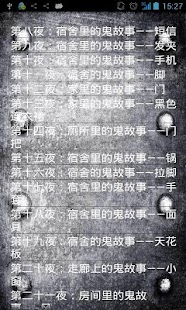 15:27
第八夜：宿舍里的鬼故事——短信
第九夜：宿舍里的鬼故事——发夹
第十夜：宿舍里的鬼故事——手机
第十一夜：宿舍的鬼故事——脚
第十二夜：家里的鬼故事——门
第十三夜：宿舍的鬼故事——黑色
连衣裙
第十四夜：厕所里的鬼故事——门
把
第十五夜：宿舍的鬼故事——锅
第十六夜：宿舍的鬼故事——拉脚
第十七夜：宿舍的鬼故事——手
第十八夜：宿舍的鬼故事——面
具
第十九夜：宿舍的鬼故事——天花
板
第二十夜：走廊上的鬼故事——小
窗
第二十一夜：房间里的鬼故